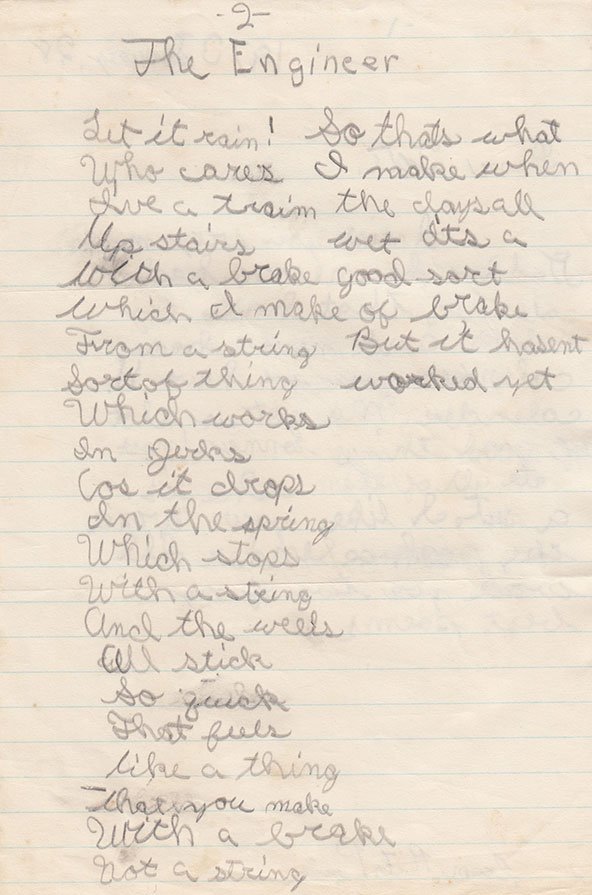 -2-
The Engineer
Let it rain!
Who cares
Ive a train
Up stairs
With a brake
Which I make
From a string
Sort of thing
Which works
In Jerks
Cos it drops
In the spring
Which stops
With a string
And the weels
All stick
So quick
That feels
like a thing
That you make
With a brake
Not a string
So thats what
I make when
the days all
wet Its a
good sort
of brake
But it hasent
worked yet